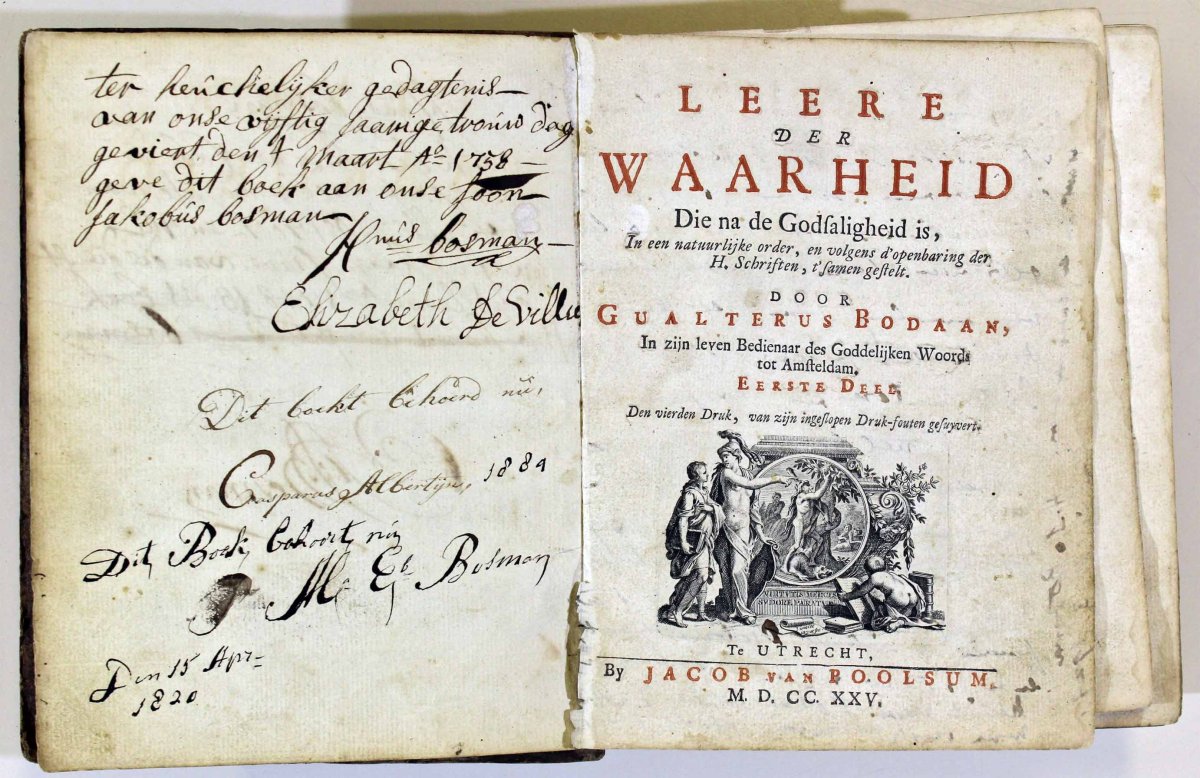 ter heuchelijker gedagtenis
van onse vijftig jaarige trouw dag
geviert den 4 Maart Ao 1758
geve dit boek aan onse soon
Jakobus bosman
bosman
Elizabeth De Villie
Dit boekt behoord nu,
Casparus Albertijn, 1884
Dit Boek behoort nu
Bosman
Den 15 Apr
1820
LEERE
DER
WAARHEID
Die na de Godſaligheid is,
In een natuurlijke order, en volgens d'openbaring der
H. Schriften, t'ſamen geſtelt.
DOOR
GUALTERUS BODAAN,
In zijn leven Bedienaar des Goddelijken Woords
tot Amſteldam.
EERSTE DEEL
Den vierden Druk, van zijn ingeſlopen Druk-fouten geſuyvert.
VIRTUTIS MERCES
SUDORE PARATUR
Te UTRECHT,
By JACOB VAN POOLSUM,
M. D. CC. XXV.